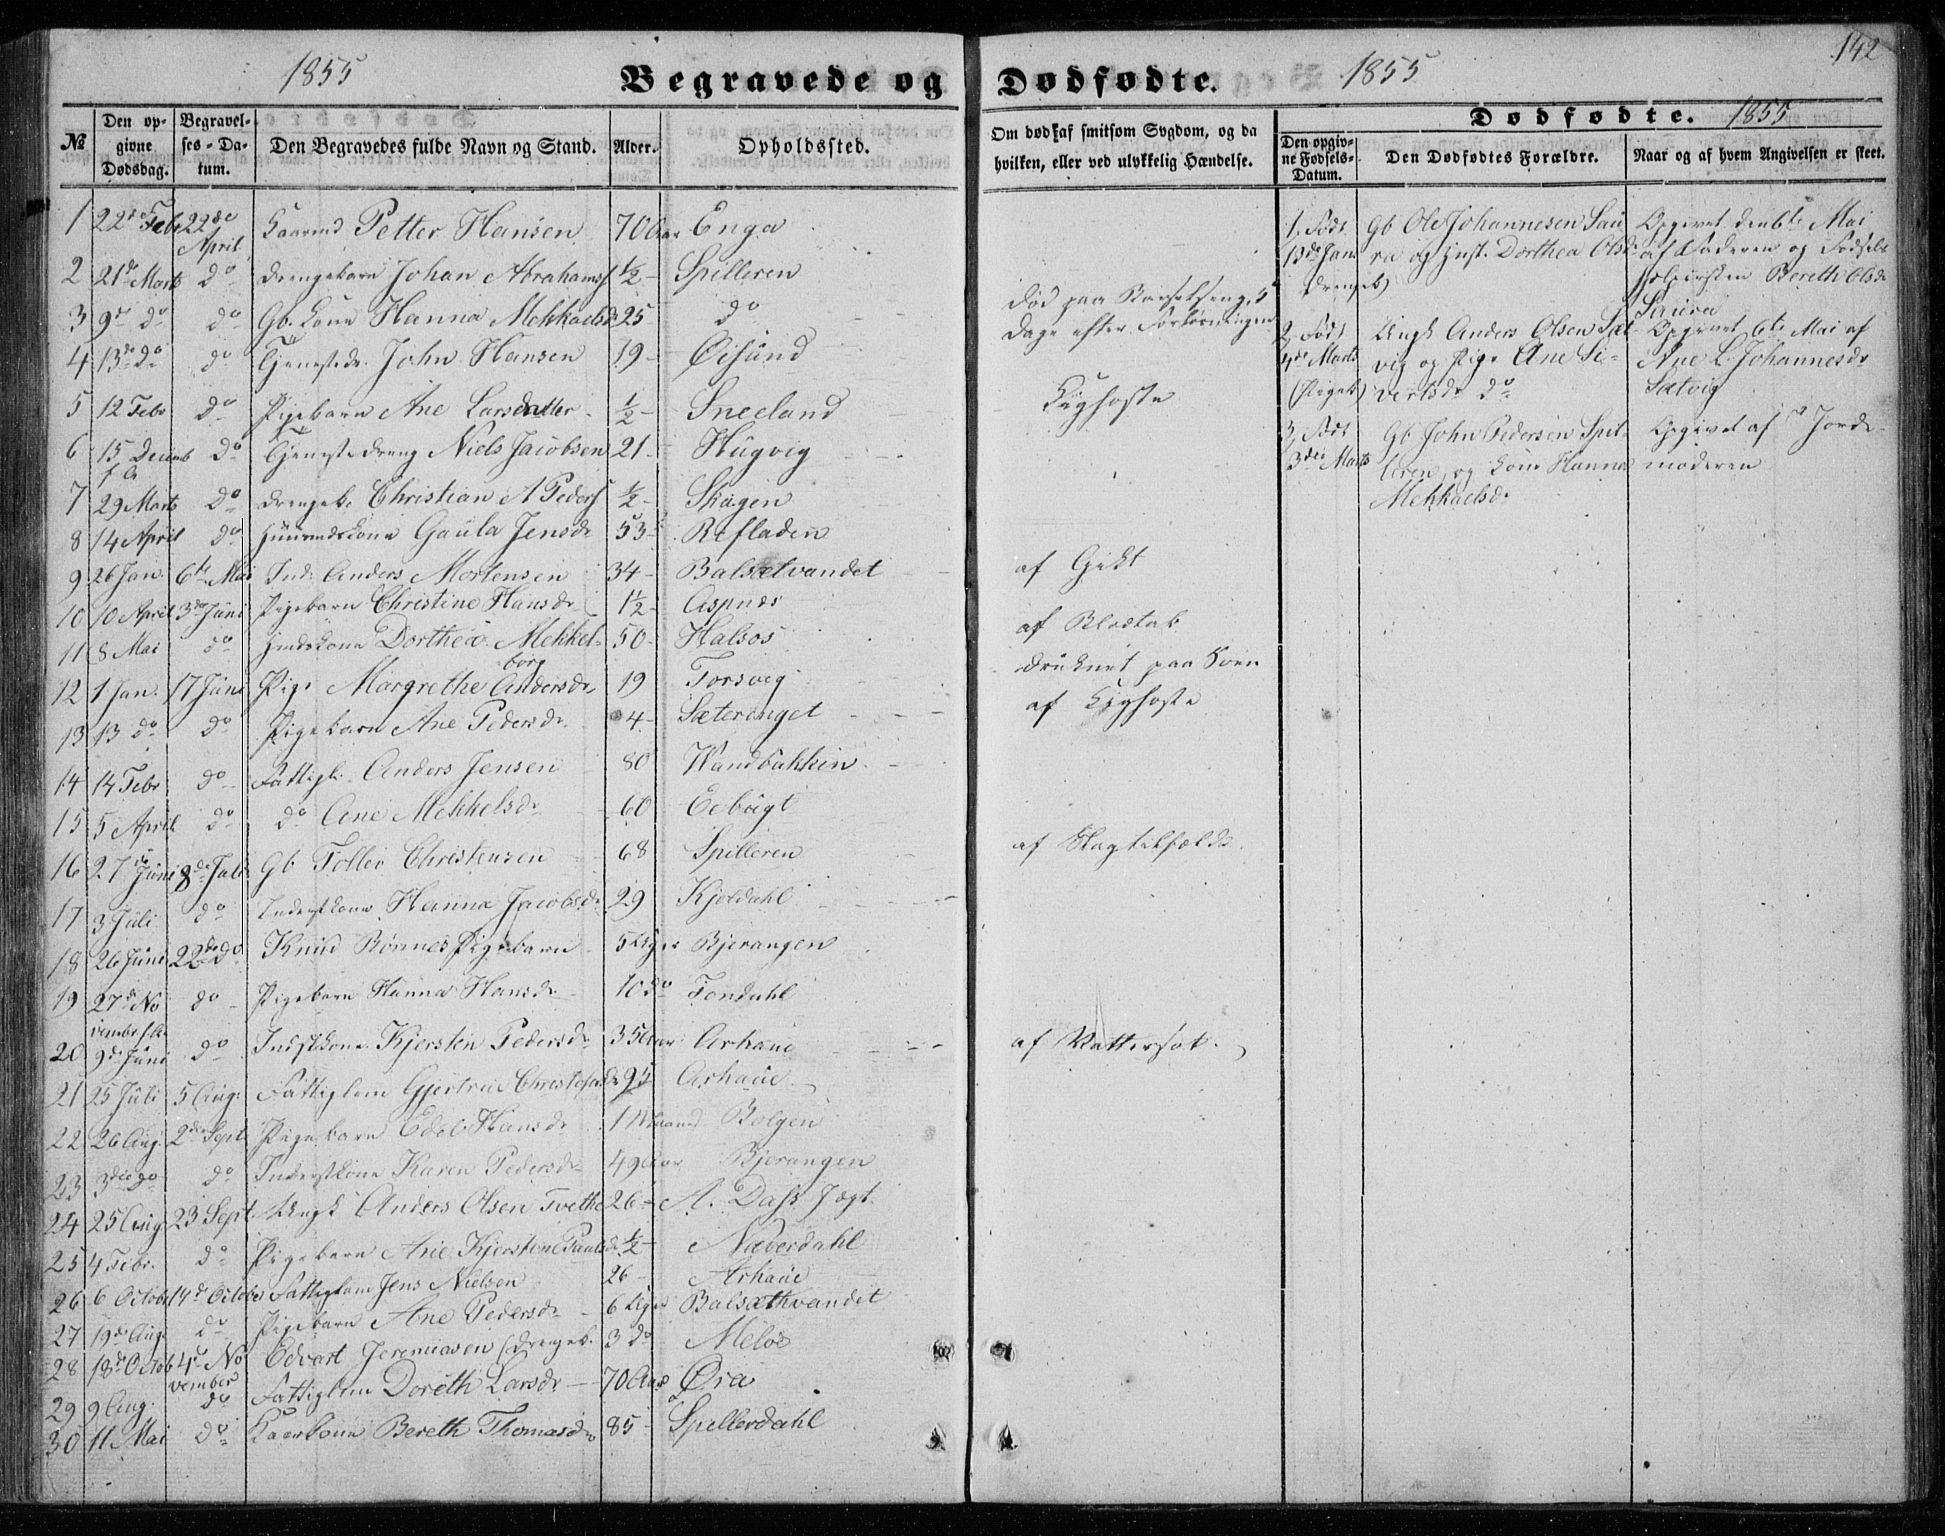 1855 Begravede og Dødfødte. 1855 142
№ Den opgivne Dødsdag. Begravelses-Datum. Den Begravedes fulde Navn og Stand. Alder. Opholdssted.
Om død af smitsom Sygdom, og da hvilken, eller ved ulykkelig Hændelse.
Dødfødte. 1855
Den opgivne Fødsels-Datum. Den Dødfødtes Forældre. Naar og af hvem Angivelsen er skeet.
1 22de Febr 22de April Kaarmd Petter Hansen 70 Aar Enga
2 21de Marts do Drengebarn Johan Abrahams ½ Spilleren
3 9de do do Gb. Kone Hanna Mehkaelsdr 25 do
4 13de do do Tjenestedr. John Hansen 19 Øisund
5 12 Febr do Pigebarn Ane Larsdatter ½ Sneeland
6 15 Decemb f A do Tjenestedreng Niels Jacobsen 21 Hugvig
7 29 Marts do Drengeb. Christian A Peders ½ Skagen
8 14 April do Huusmdskone Gaula Jensdr 53 Refladen
9 26 Jan. 6te Mai Ind. Anders Mortensen 34 Balsætvandet
10 10 April 3die Juni Pigebarn Christine Hansdr 1½ Aspnes
11 8 Mai do Indskone Dorthea Mehkel- 50 Halsos
12 1 Jan. 17 Juni Pige Margrethe borg Andersdr 19 Torsvig
13 13 do do Pigebarn Ane Pedersdr 4 Sæterenget
14 14 Febr do Fattigl. Anders Jensen 80 Wandbakken
15 5 April do do Ane Mehkelsdr 60 Eebugt
16 27de Juni 8de Juli Gb Toller Christensen 68 Spilleren
17 3 Juli do Inderstkone Hanna Jacobsdr 29 Kjeldahl
18 26 Juni 22de do Knud Bønnes Pigebarn 5 Uger Bjerangen
19 27de November f. A. do Pigebarn Hanna Hansdr 10 do Fondahl
20 9de Juni do Indstkone Kjersten Pedersdr 35 Aar Arhaue
21 25 Juli 5 Aug. Fattiglem Gjertrue Christofersdr 95 Arhaue
22 26 Aug. 2den Sept Pigebarn Edel Hansdr 1 Maaned Bolgen
23 3die do do Inderstkone Karen Pedersdr 49 Aar Bjerangen
24 25 Aug 23 Sept. Ungk Anders Olsen Tvethe 26 A. Dass Jægt.
25 4 Febr. do Pigebarn Ane Kjerstene Paulsdr ½ Næverdahl
26 6 Octobr 14de October Fattiglem Jens Nielsen 26 Arhaue
27 19de Aug. do Pigebarn Ane Pedersdr 6 Uger Balsæthvandet
28 18de Octob 4de November Edvart Jeremiasen (Drengeb. 3 do Meløe
29 9 Aug. do Fattiglem Doreth Larsdr 70 Aar Øra
30 11 Mai do Kaarkone Bereth Thomasdr 85 Spellerdahl
død paa Barselseng, 5
Dage efter Forløsningen
Kighoste
af Gigt
af Blodtab
druknet paa Søen
af Kighoste
af Slagtilfælde.
af Vattersot.
1. Født 13de Jan Drengeb) Gb Ole Johannesen Saura og Hust. Dorthea Olsdr
Opgivet den 6te Mai
af Faderen og Fødsels
hjelpersken Bereth Olsdr
Saura
2. Født 4de Marts (Pigeb) Ungk Anders Olsen Sætvig og Pige Ane Sivertsdr do
Opgivet 6te Mai af
Ane L. Johannesdr
Sætvig
3. Født 3die Marts Gb John Pedersen Spilleren, og Kone Hanna Mehkaelsdr
Opgivet af Jordemoderen